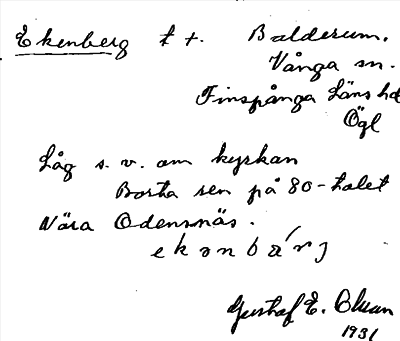 Ekenberg t +. Balderum.
Vånga sn.
Finspånga Läns hd
Ögl
Låg s. v. om kyrkan
Borta sen på 80-talet
Nära Odensnäs.
Gustaf E.
1931